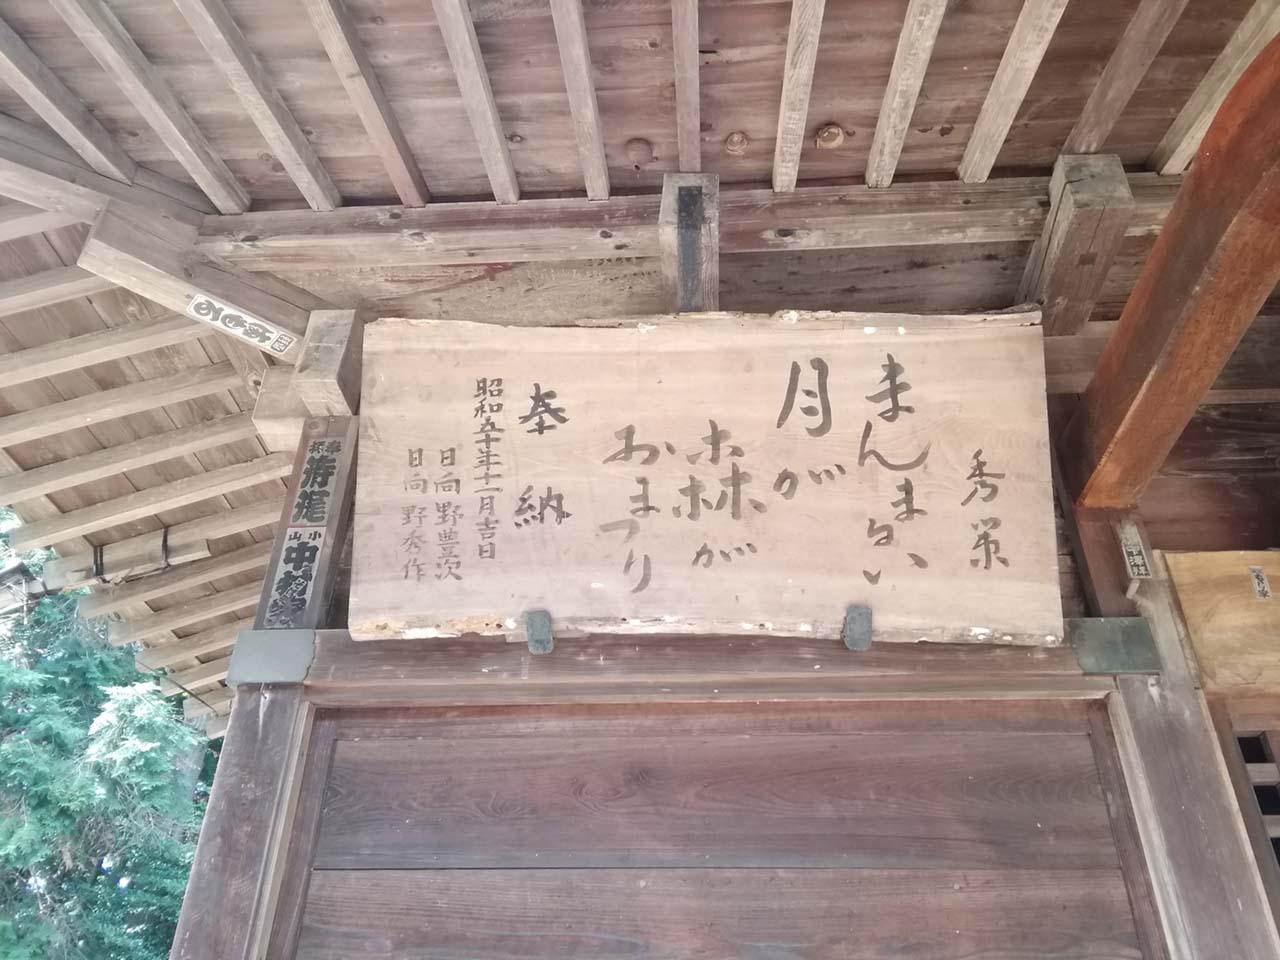 秀策
まんまるい
月が
森が
おまつり
奉納
昭和五十年十一月吉日
日向野豊次
日向野秀作
小山